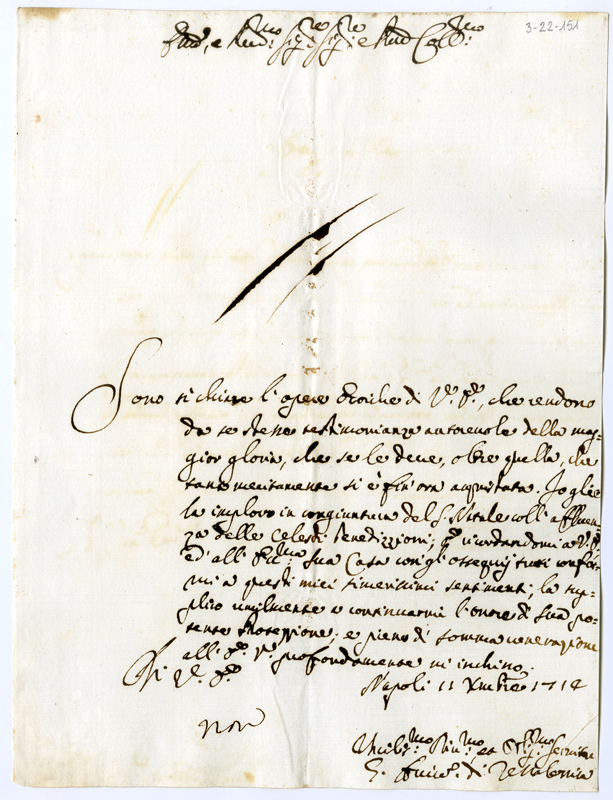 3-22-151
Em.mo, e Rev.mo Sig.re Sig.re e P.ron Col.mo
Sono sì chiare l'opere eroiche di V.ra E.za, che rendono
da se stesse testimonianza autorevole della mag-
gior gloria, che se le deve, oltre quella, che
tanto meritamente si è fin'ora acquistata. Io glie
la imploro in congiuntura del S. Natale coll'affluen-
za delle Celesti Benedizzioni; e ricordandomi a V. E.
ed all' Ecc.ma sua Casa con gli ossequij tutti confor-
mi a questi miei sentimenti; la sup-
plico umilmente a continuarmi l'onore di sua po-
tente Protezzione; e pieno di somma venerazione
all' E. V. profondamente m'inchino.
Di V. E.
Napoli 11 Xmbre 1714
Umiliss.mo Div.mo ed Obl.mo Servitore
di